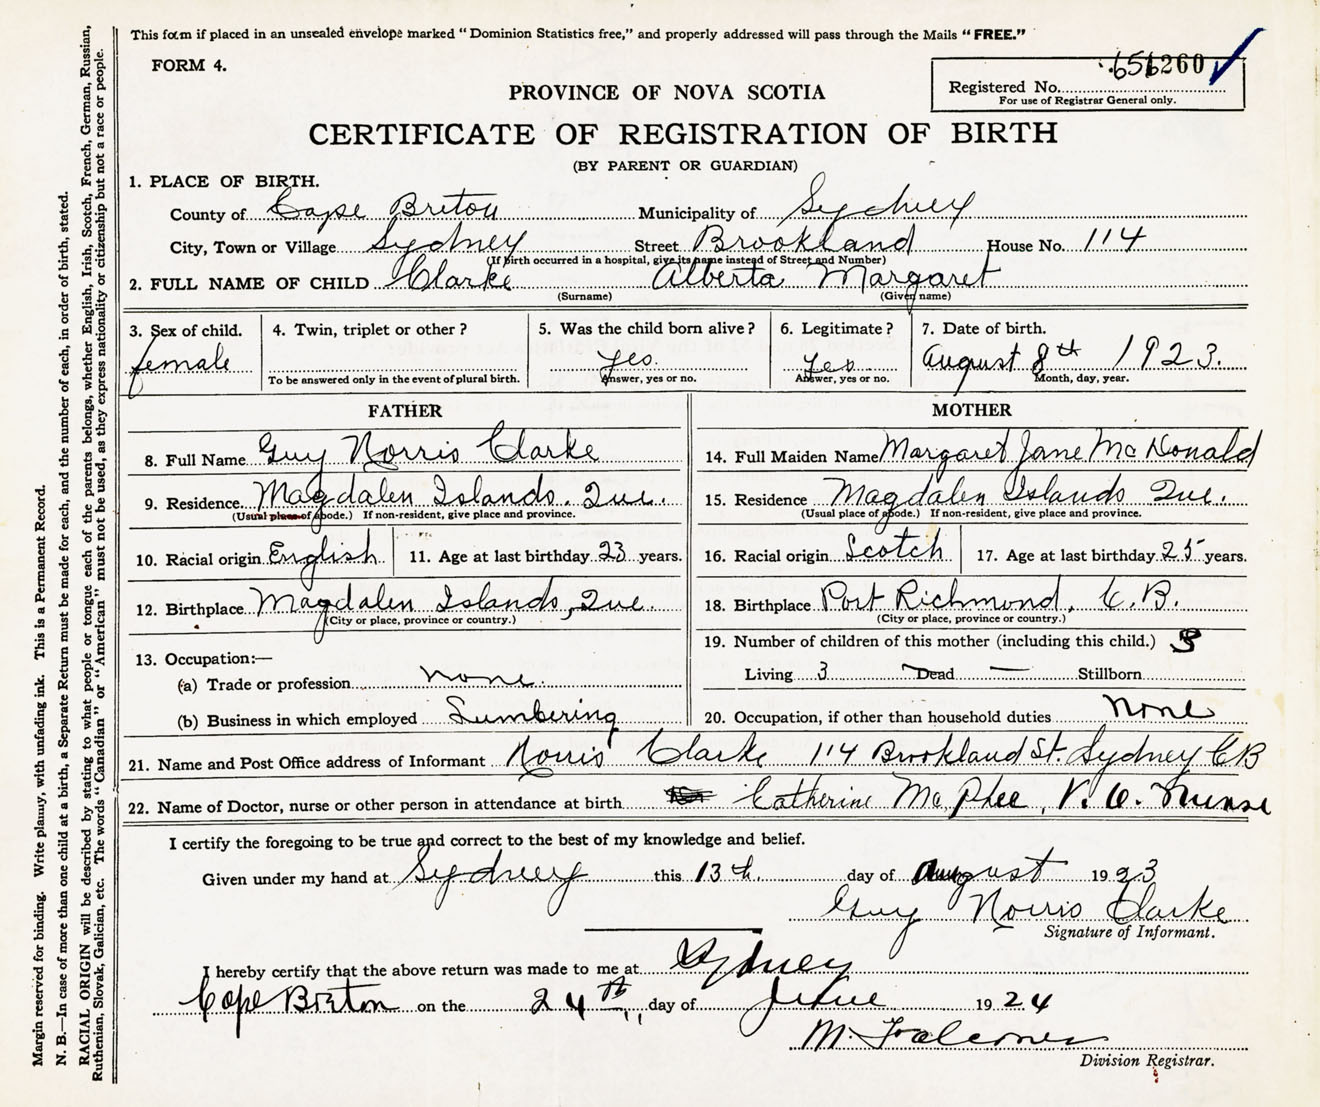 This form if placed in an unsealed envelope marked "Dominion Statistics free," and properly addressed will pass through the Mails "FREE."
FORM 4.
Registered No. 260
For use of Registrar General only.
PROVINCE OF NOVA SCOTIA
CERTIFICATE OF REGISTRATION OF BIRTH
(BY PARENT OR GUARDIAN)
1. PLACE OF BIRTH.
County of Cape Breton Municipality of Sydney
City, Town or Village Sydney Street Brookland House No. 114
(If birth occurred in a hospital, give its name instead of Street and Number)
2. FULL NAME OF CHILD Clarke Alberta Margaret
(Surname) (Given name)
3. Sex of child. 4. Twin, triplet or other? 5. Was the child born alive? 6. Legitimate? 7. Date of birth.
female yes. Yes August 8th 1923.
To be answered only in the event of plural birth. Answer, yes or no. Answer, yes or no. Month, day, year.
FATHER
8. Full Name Guy Norris Clarke
9. Residence Magdalen Islands. Que.
(Usual place of abode.) If non-resident, give place and province.
10. Racial origin English 11. Age at last birthday 23 years.
12. Birthplace Magdalen Islands, Que.
(City or place, province or country.)
13. Occupation:—
(a) Trade or profession none.
(b) Business in which employed Lumbering
MOTHER
14. Full Maiden Name Margaret Jane McDonald
15. Residence Magdalen Islands Que.
(Usual place of abode.) If non-resident, give place and province.
16. Racial origin Scotch 17. Age at last birthday 25 years.
18. Birthplace Port Richmond, C.B.
(City or place, province or country.)
19. Number of children of this mother (including this child.) 3
Living 3 Dead — Stillborn
20. Occupation, if other than household duties None
21. Name and Post Office address of Informant Norris Clarke 114 Brookland St. Sydney CB
22. Name of Doctor, nurse or other person in attendance at birth Catherine McPhee, V.O. Nurse
I certify the foregoing to be true and correct to the best of my knowledge and belief.
Given under my hand at Sydney this 13th. day of August 1923
Guy Norris Clarke
Signature of Informant.
I hereby certify that the above return was made to me at Sydney
Cape Breton on the 24th day of June 1924
M. Falconer
Division Registrar.
Margin reserved for binding. Write plainly, with unfading ink. This is a Permanent Record.
N. B.—In case of more than one child at a birth, a Separate Return must be made for each, and the number of each, in order of birth, stated.
RACIAL ORIGIN will be described by stating to what people or tongue each of the parents belongs, whether English, Irish, Scotch, French, German, Russian,
Ruthenian, Slovak, Galician, etc. The words "Canadian" or "American" must not be used, as they express nationality or citizenship but not a race or people.